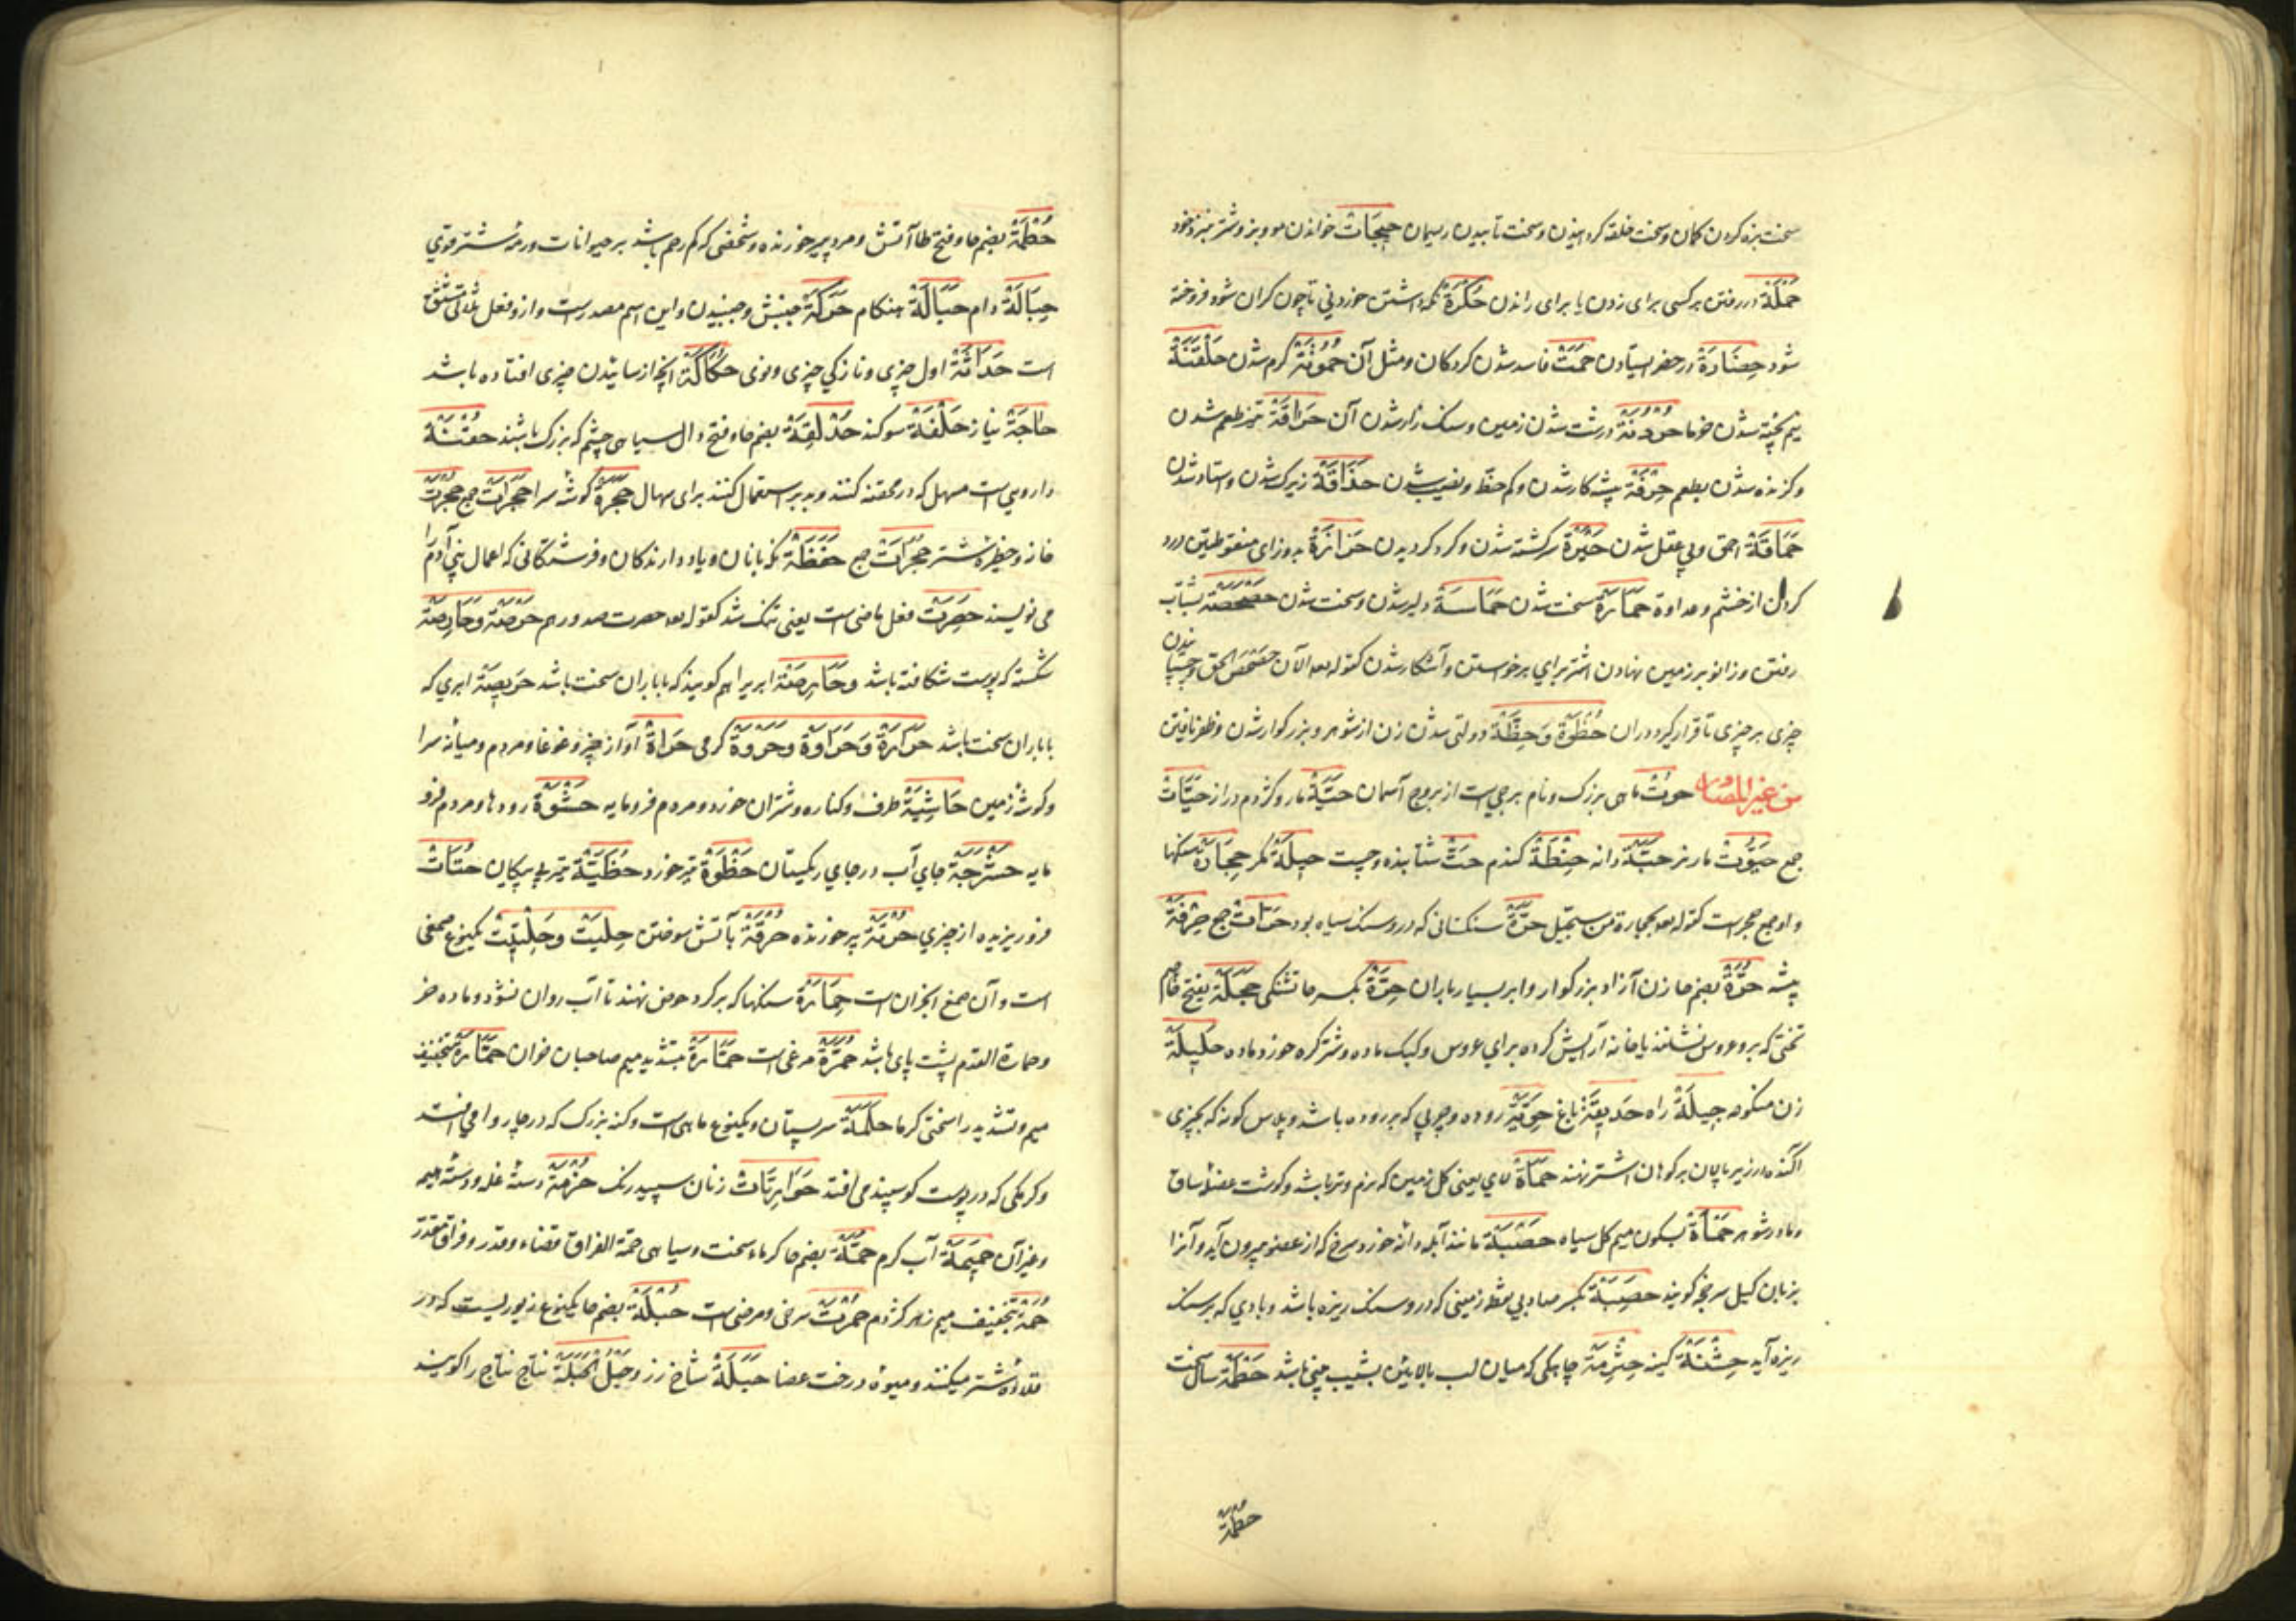 سخت بزه کردن کمان و سخت خلقه کرد انیدن و سخت تابیدن ریسمان حَبِجَاتْ خواندن مو و بز و شتر بنزد خود
حَمْلَة در رفتن بر کسی برای زدن یا برای راندن حُكْرَةْ نگه داشتن خوردنی تا چون گران شود فروخته
شود حِضَارَةْ در حضر ایستادن حَمَتْ فاسد شدن گردکان و مثل آن حُمُوتَةْ گرم شدن حَلْقَنَةْ
نیم پخته شدن خرما حُزُونَةْ درشت شدن زمین و سنک زار شدن آن حَرَاقَةْ تیز طعم شدن
و گزنده شدن بطعم حِرْفَةْ پیشه کار شدن و کم حظ و نصیب شدن حَذَاقَةْ زیرک شدن و استاد شدن
حَمَاقَةْ احمق و بی عقل شدن حَيْرَةْ سرگشته شدن و گرد گردیدن حَزَازَةْ بدو زای منقوطتین درد
کردن دل از خشم و عداوة حَمَازَةْ سخت شدن حَمَاسَةْ دلیر شدن و سخت شدن حَصْحَصَة بشتاب
رفتن و زانو بر زمین نهادن اشتر برای برخواستن و آشکار شدن کقوله تعه الآن حَصْحَصَ الحق و چسپا نیدن
چیزی بر چیزی تا قرار گیرد در آن حُظْوَةْ وَحِظَةْ دولتی شدن زن از شوهر و بزرگوار شدن و ظفر یافتن
من غیر المصادر حوت ماهی بزرک و نام برجی است از بروج آسمان حَيَّةْ مار و کژدم دراز حَيَّاتْ
جمع حَيُّوتْ مار نر حَبَّةْ دانه حِنْطَةْ گندم حَثْ شتابنده و چست حِيلَةْ مکر حِجَارَةْ سنگها
و او جمع حجر است کقوله تعه بحجارة من سجّیل حَرَّةْ سنکستانی که درو سنک سیاه بود حَرَّاتْ جمع حِرْفَةْ
پیشه حُرَّةْ بضم حا زن آزاد و بزرگوار و ابر بسیار باران حِرَّةْ بکسر حا تشنگی حَجَلَةْ بفتح حا و جیم
تختی که برو عروس نشانند یا خانه آرایش کرده برای عروس و کبک ماده و شتر کره خورد ماده حَلِيلَةْ
زن منکوحه حِيلَةْ راه حَدِيقَةْ باغ حَوِيَّةْ روده و چربی که بر روده باشد و پلاس کونه که بچیزی
آکنده در زیر پالان بر کوهان اشتر نهند حَمَاةْ لای یعنی گل زمین که نرم و تر باشد و گوشت عضو ساق
و مادر شوهر حَمْأَةْ بسکون میم گل سیاه حَصْبَةْ مانند آبله دانه خورد سرخ که از عضو بیرون آید و آنرا
بزبان گیل سرخجه گویند حَصِبَةْ بکسر صاد بی نقط زمینی که درو سنک ریزه باشد و بادی که بر سنک
ریزه آید حِشْنَةْ کینه حِثْرِمَةْ چاهکی که میان لب بالائین بشیب بینی باشد حَطْمَةْ سال سخت
حُطَمَةْ
حُطَمَةْ بضم حا و فتح طا آتش و مرد پر خورنده و شخصی که کم رحم باشد بر حیوانات و رمهٔ شتر قوی
حِبَالَةْ دام حَبَالَّةْ هنکام حَرَكَةْ جنبش و جنبیدن و این اسم مصدر است و ازو فعل ثلاثی مشتق
است حَدَاثَةْ اول چیزی و نازکی چیزی و نوی حُكَاكَةْ آنچه از سائیدن چیزی افتاده باشد
حَاجَةْ نیاز حَلْفَةْ سوکند حَدَقَةْ بضم حا و فتح دال سیاهی چشم که بزرک باشد حُقْنَةْ
دارویی است مسهل که در محقنه کنند و بدبر استعمال کنند برای اسهال حُجْرَةْ گوشهٔ سرا حُجُرَاتْ جمع حُجْرَتْ
خانه و حظیرهٔ شتر حُجَرَاتْ جمع حَفَظَةْ نگه بانان و یاد دارندگان و فرشتگانی که اعمال بنی آدم را
می نویسند حَصِرَتْ فعل ماضی است یعنی تنک شد کقوله تعه حصرت صدورهم حَرْصَةْ وَحَارِصَةْ
شکسته که پوست شکافته باشد وحَارِصَةْ ابریرا هم گویند که با باران سخت باشد حَرِيصَةْ ابری که
با باران سخت باشد حَرَارَةْ وَحَرَاوَةْ وحَرْوَةْ گرمی حَرَاةْ آواز چیز و غوغا و مردم و میانه سرا
و گوشهٔ زمین حَاشِيَةْ طرف و کناره و شتران خورد و مردم فرومایه حَشْوَةْ رودها و مردم فرو
مایه حَشْرَجَةْ جای آب در جای ریکستان حَظْوَةْ تیر خورد حُظَيَّةْ تیر بی پیکان حُتَاتْ
فرو ریزیده از چیزی حُرَقَةْ پر خورنده حُرْقَةْ بآتش سوختن حِلِيتْ وَحِلْتِيتْ یکنوع صمغی
است و آن صمغ انجدان است حِمَارَةْ سنگها که بر گرد حوض نهند تا آب روان نشود و ماده خر
و حمارة القدم پشت پای باشد حُمَّرَةْ مرغی است حَمَّارَةْ بتشدید میم صاحبان خران حَمَارَّةْ بتخفیف
میم و تشدید را سختی گرما حَلَمَةْ سر پستان و یکنوع ماهی است و کنه بزرک که در چاروا می افتد
و کرمکی که در پوست گوسپند می افتد حَوَارِيَّاتْ زنان سپید رنک حُزْمَةْ دستهٔ غله و دستهٔ هیمه
و غیر آن حَمِيمَةْ آب گرم حُمَّةْ بضم حا گرماء سخت و سیاهی حمة الفراق قضاء و قدر و فراق مقدر
حُمَةْ بتخفیف میم زهر کژدم حُمْرَتْ سرخی و مرضی است حُبْلَةْ بضم حا یکنوع زیوریست که در
قلادهٔ شتر میکنند و میوهٔ درخت عضا حَبَلَةْ شاخ رز وحَبَلُ الحَبَلَةْ نتاج نتاج را گویند